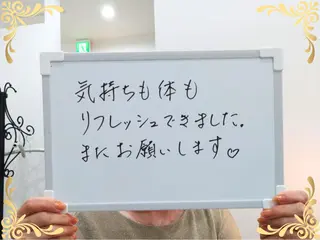 気持ちも体も
リフレッシュできました。
またお願いします♡